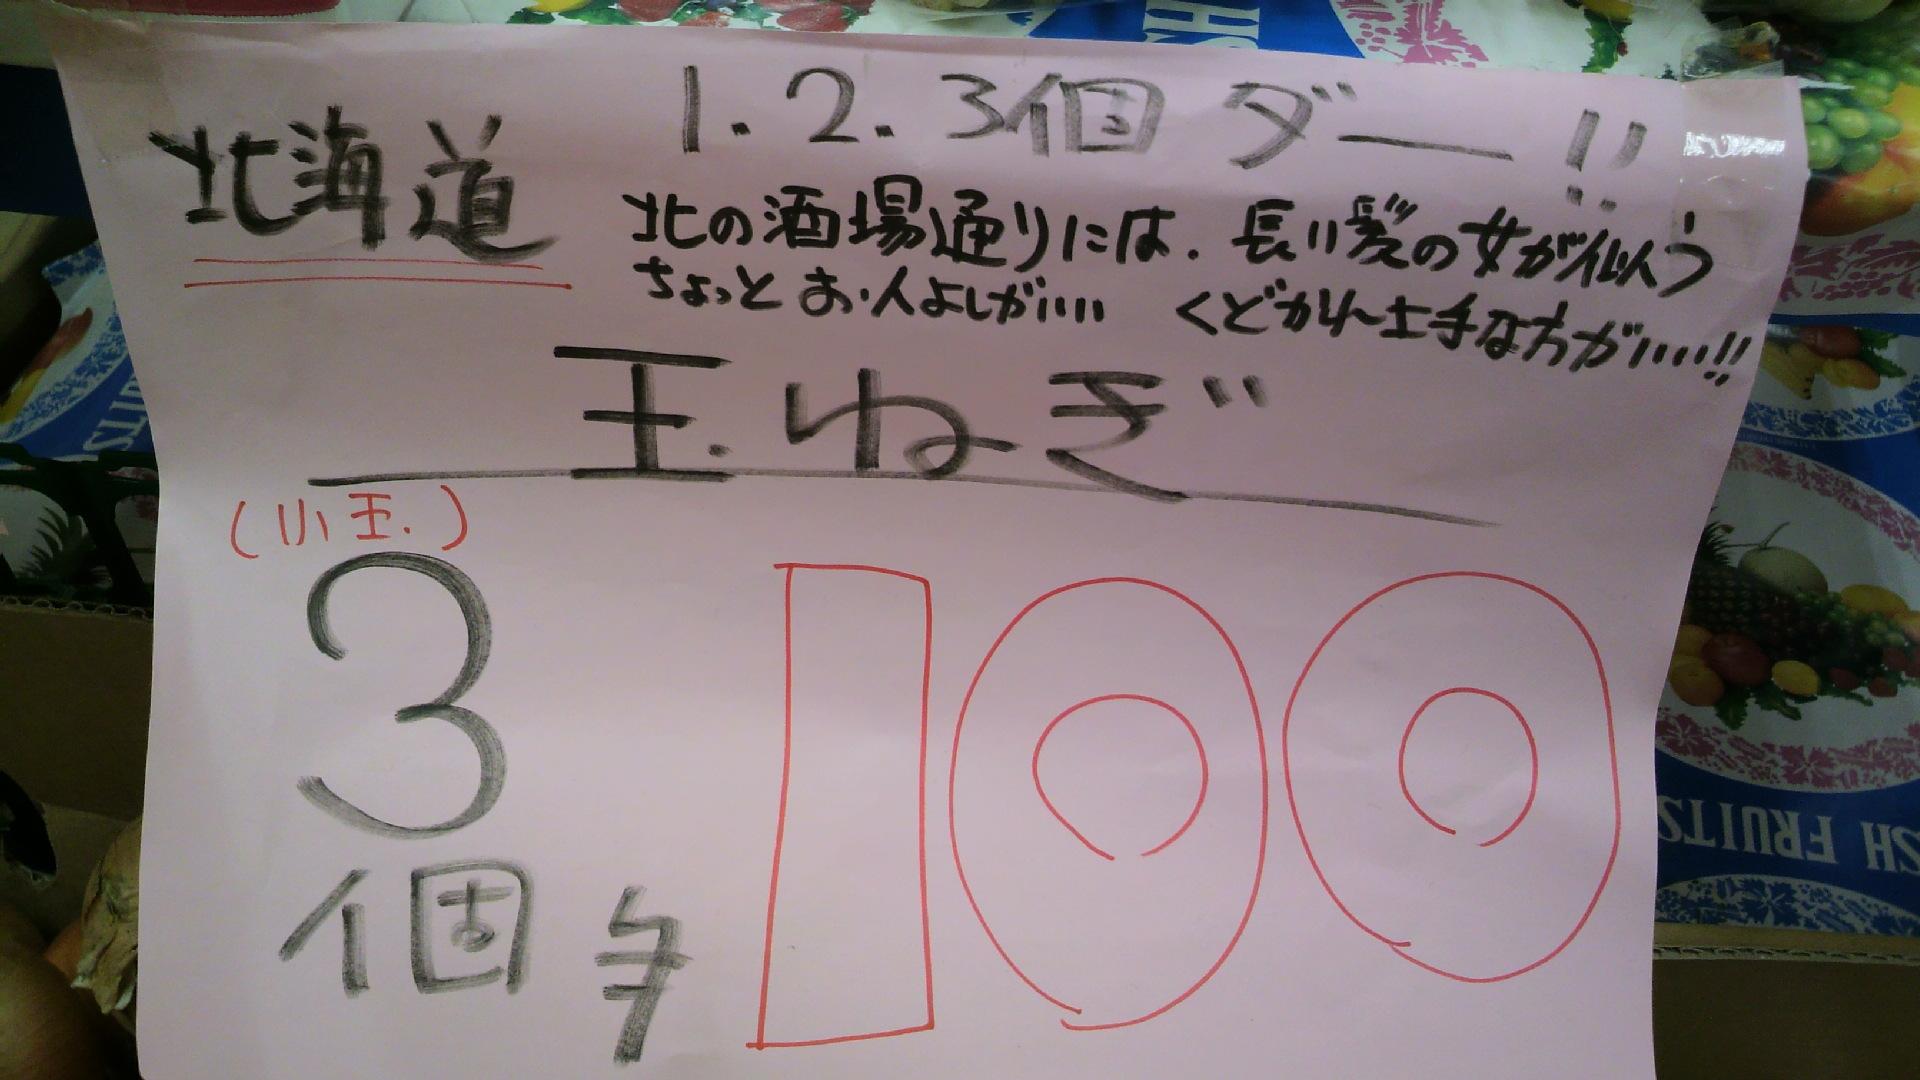 北海道
1.2.3個ダー!!
北の酒場通りには.長い髪の女が似う
ちょっとお人よしがいい くどかれ上手な方がいい!!
玉ねぎ
(小玉)
3個 ¥100
SH
SH FRUITS
UITS